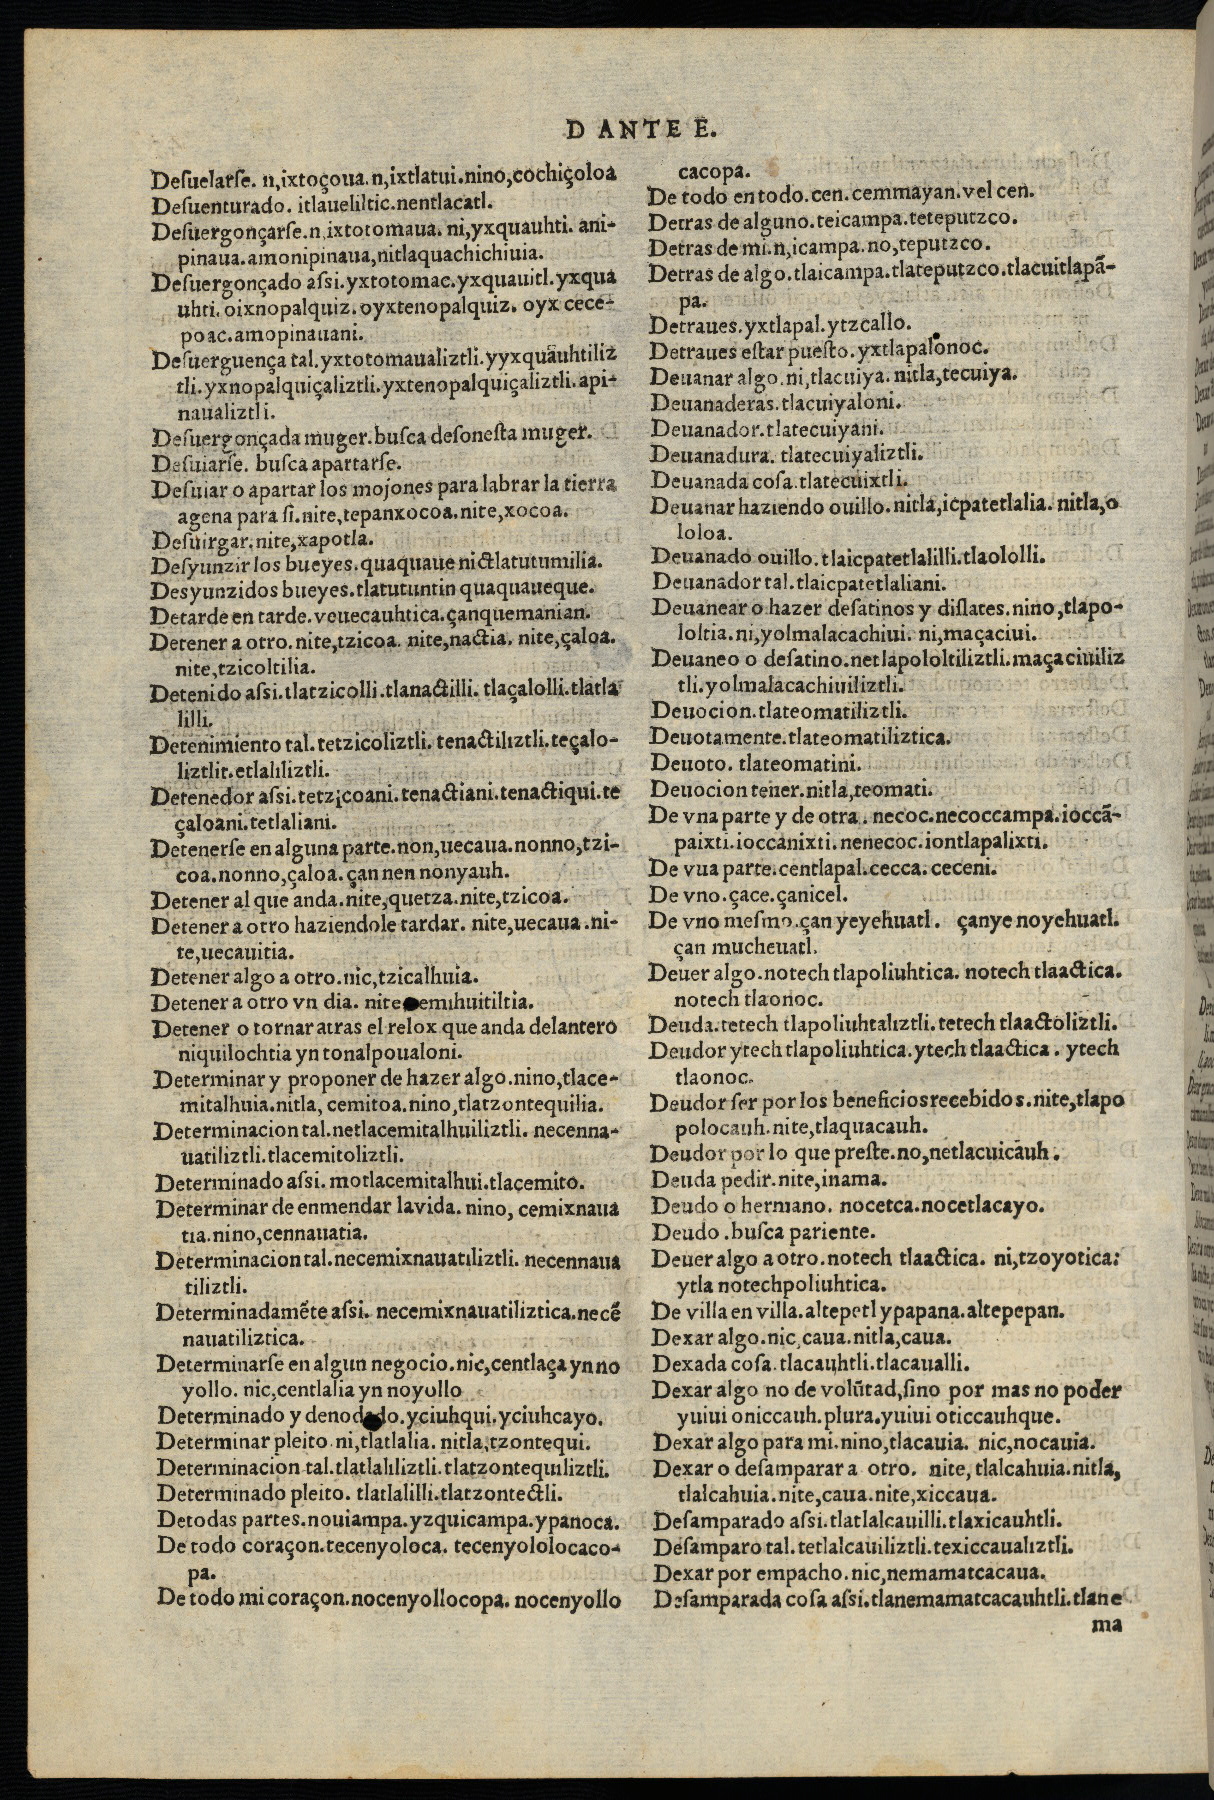 D ANTE E.
Deſuelarſe. n,ixtoçoua. n,ixtlatui.nino,cochiçoloa
Deſuenturado. itlaueliltic.nentlacatl.
Deſuergonçarſe.n,ixtotomaua. ni,yxquauhti. ani-
pinaua.amonipinaua,nitlaquachichiuia.
Deſuergonçado aſsi.yxtotomac.yxquauitl.yxqua
uhti. oixnopalquiz. oyxtenopalquiz. oyx cece-
poac.amopinauani.
Deſuerguença tal.yxtotomaualiztli.yyxquauhtiliz
tli.yxnopalquiçaliztli.yxtenopalquiçaliztli.api-
naualiztli.
Deſuergonçada muger.buſca deſoneſta muger.
Deſuiarſe. buſca apartarſe.
Deſuiar o apartar los mojones para labrar la tierra
agena para ſi.nite,tepanxocoa.nite,xocoa.
Deſuirgar.nite,xapotla.
Deſyunzir los bueyes.quaquaue nictlatutumilia.
Desyunzidos bueyes.tlatutuntin quaquaueque.
Detarde en tarde.veuecauhtica.çanquemanian.
Detener a otro.nite,tzicoa. nite,nactia. nite,çaloa.
nite,tzicoltilia.
Detenido aſsi.tlatzicolli.tlanactilli. tlaçalolli.tlatla
lilli.
Detenimiento tal.tetzicoliztli. tenactiliztli.teçalo-
liztlit.etlaliliztli.
Detenedor aſsi.tetzicoani.tenactiani.tenactiqui.te
çaloani.tetlaliani.
Detenerſe en alguna parte.non,uecaua.nonno,tzi-
coa.nonno,çaloa.çan nen nonyauh.
Detener al que anda.nite,quetza.nite,tzicoa.
Detener a otro haziendole tardar. nite,uecaua.ni-
te,uecauitia.
Detener algo a otro.nic,tzicalhuia.
Detener a otro vn dia. nite emihuitiltia.
Detener o tornar atras el relox que anda delantero
niquilochtia yn tonalpoualoni.
Determinar y proponer de hazer algo.nino,tlace-
mitalhuia.nitla, cemitoa.nino,tlatzontequilia.
Determinacion tal.netlacemitalhuiliztli. necenna-
uatiliztli.tlacemitoliztli.
Determinado aſsi. motlacemitalhui.tlacemito.
Determinar de enmendar lavida. nino, cemixnaua
tia.nino,cennauatia.
Determinacion tal.necemixnauatiliztli. necennaua
tiliztli.
Determinadamẽte aſsi. necemixnauatiliztica.necẽ
nauatiliztica.
Determinarſe en algun negocio.nic,centlaça yn no
yollo. nic,centlalia yn noyollo
Determinado y denodado.yciuhqui.yciuhcayo.
Determinar pleito.ni,tlatlalia. nitla,tzontequi.
Determinacion tal.tlatlaliliztli.tlatzontequiliztli.
Determinado pleito. tlatlalilli.tlatzontectli.
Detodas partes.nouiampa.yzquicampa.ypanoca.
De todo coraçon.tecenyoloca. tecenyololocaco-
pa.
De todo mi coraçon.nocenyollocopa. nocenyollo
cacopa.
De todo en todo.cen.cemmayan.vel cen.
Detras de alguno.teicampa.teteputzco.
Detras de mi.n,icampa.no,teputzco.
Detras de algo.tlaicampa.tlateputzco.tlacuitlapã-
pa.
Detraues.yxtlapal.ytzcallo.
Detraues eſtar pueſto.yxtlapalonoc.
Deuanar algo.ni,tlacuiya. nitla,tecuiya.
Deuanaderas.tlacuiyaloni.
Deuanador.tlatecuiyani.
Deuanadura. tlatecuiyaliztli.
Deuanada coſa.tlatecuixtli.
Deuanar haziendo ouillo.nitla,icpatetlalia. nitla,o
loloa.
Deuanado ouillo.tlaicpatetlalilli.tlaololli.
Deuanador tal.tlaicpatetlaliani.
Deuanear o hazer deſatinos y diſlates.nino,tlapo-
loltia.ni,yolmalacachiui. ni,maçaciui.
Deuaneo o deſatino.netlapololtiliztli.maçaciuiliz
tli.yolmalacachiuiliztli.
Deuocion.tlateomatiliztli.
Deuotamente.tlateomatiliztica.
Deuoto. tlateomatini.
Deuocion tener.nitla,teomati.
De vna parte y de otra. necoc.necoccampa.ioccã-
paixti.ioccanixti.nenecoc.iontlapalixti.
De vua parte.centlapal.cecca.ceceni.
De vno.çace.çanicel.
De vno meſmo.çan yeyehuatl. çanye noyehuatl.
çan mucheuatl.
Deuer algo.notech tlapoliuhtica. notech tlaactica.
notech tlaonoc.
Deuda.tetech tlapoliuhtaliztli.tetech tlaactoliztli.
Deudor ytech tlapoliuhtica.ytech tlaactica. ytech
tlaonoc.
Deudor ſer por los beneficios recebidos.nite,tlapo
polocauh.nite,tlaquacauh.
Deudor por lo que preſte.no,netlacuicauh.
Deuda pedir.nite,inama.
Deudo o hermano. nocetca.nocetlacayo.
Deudo .buſca pariente.
Deuer algo a otro.notech tlaactica. ni,tzoyotica:
ytla notechpoliuhtica.
De villa en villa.altepetl ypapana.altepepan.
Dexar algo.nic,caua.nitla,caua.
Dexada coſa.tlacauhtli.tlacaualli.
Dexar algo no de volũtad,ſino por mas no poder
yuiui oniccauh.plura.yuiui oticcauhque.
Dexar algo para mi.nino,tlacauia. nic,nocauia.
Dexar o deſamparar a otro. nite, tlalcahuia.nitla,
tlalcahuia.nite,caua.nite,xiccaua.
Deſamparado aſsi.tlatlalcauilli.tlaxicauhtli.
Deſamparo tal.tetlalcauiliztli.texiccaualiztli.
Dexar por empacho.nic,nemamatcacaua.
Deſamparada coſa aſsi.tlanemamatcacauhtli.tlane
ma